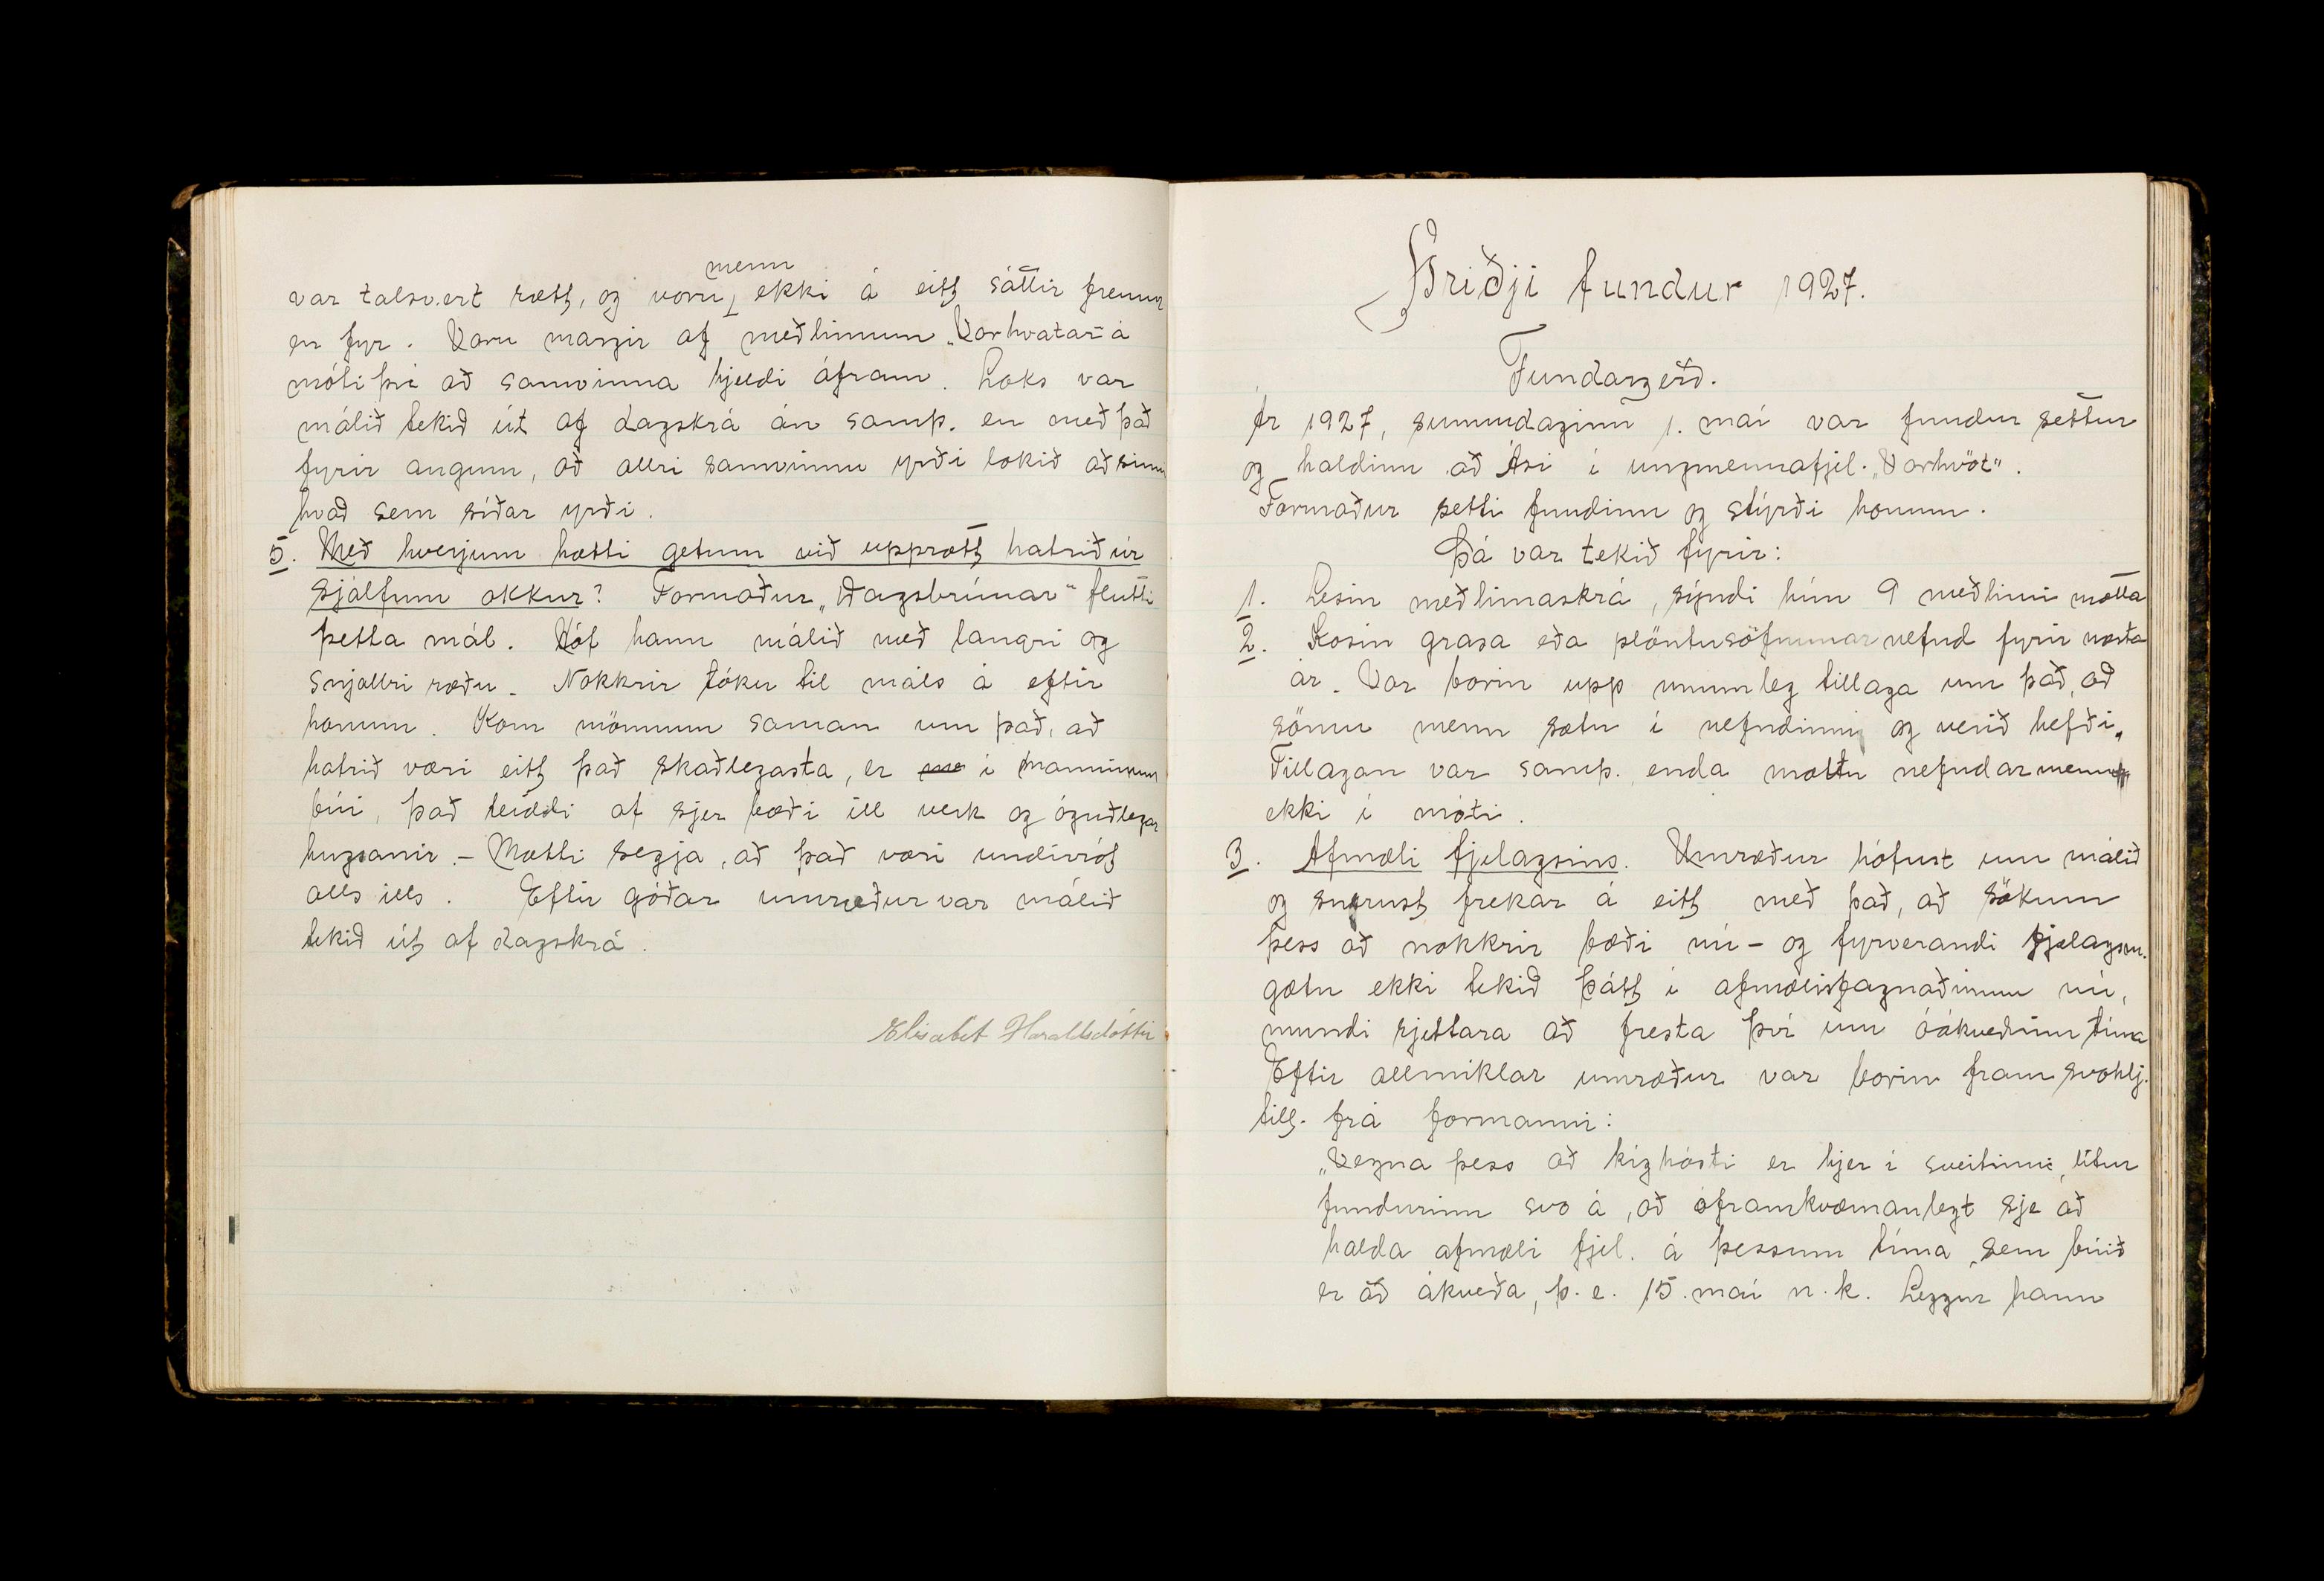 var talsvert rætt, og voru menn ekki á eitt sáttir fremur
en fyr. Voru margir af meðlimum „Vorhvatar“ á
móti því að samvinna hjeldi áfram. Loks var
málið tekið út af dagskrá án samþ. en með það
fyrir augum, að allri samvinnu yrði lokið að sinni
hvað sem síðar yrði.
5. Með hverjum hætti getum við upprætt hatrið úr
sjálfum okkur? Formaður „Dagsbrúnar“ flutti
þetta mál. Hóf hann málið með langri og
snjallri ræðu. Nokkrir tóku til máls á eftir
honum. Kom mönnum saman um það, að
hatrið væri eitt það skaðlegasta, er í manninum
búi, það leiddi af sjer bæði ill verk og óguðlegar
hugsanir. - Mætti segja, að það væri undirrót
alls ills. Eftir góðar umræður var málið
tekið út af dagskrá.
Elísabet Haraldsdóttir
Þriðji fundur 1927.
Fundargerð.
Ár 1927, sunnudaginn 1. maí var fundur settur
og haldinn að Ási í ungmennafjel. „Vorhvöt“.
Formaður setti fundinn og stýrði honum.
Þá var tekið fyrir:
1. Lesin meðlimaskrá, sýndi hún 9 meðlimi mætta
2. Kosin grasa eða plöntusöfnunarnefnd fyrir næsta
ár. Var borin upp munnleg tillaga um það, að
sömu menn sætu í nefndinni og verið hefði.
Tillagan var samþ. enda mæltu nefndarmenn
ekki í móti.
3. Afmæli fjelagsins. Umræður hófust um málið
og snerust frekar á eitt með það, að sökum
þess að nokkrir bæði nú- og fyrverandi fjelagsm.
gætu ekki tekið þátt í afmælisfagnaðinum nú,
mundi rjettara að fresta því um óákveðinn tíma
Eftir allmiklar umræður var borin fram svohlj.
till. frá formanni:
„Vegna þess að kíghósti er hjer í sveitinni, lítur
fundurinn svo á, að óframkvæmanlegt sje að
halda afmæli fjel. á þessum tíma, sem búið
er að ákveða, þ. e. 15. maí n. k. Leggur hann